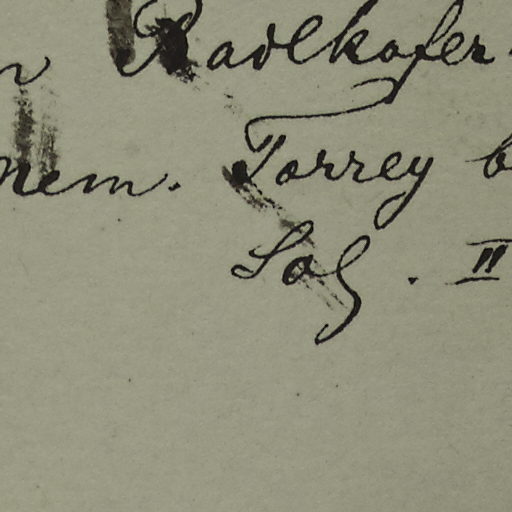 Radlkofer
mem. Torrey b
Sol. II